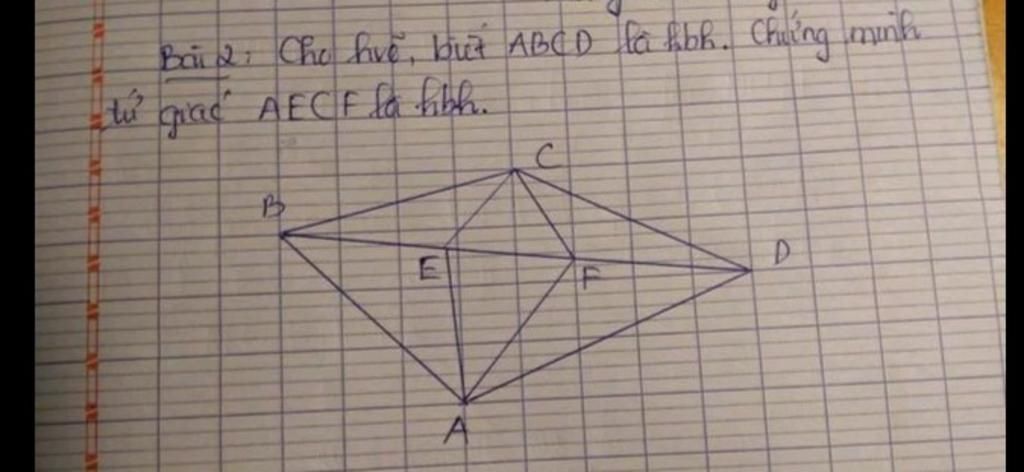 Bài 2: Cho hvẽ, biết ABCD là hbh. Chứng minh
tứ giác AECF là hbh.
C
B
D
E
F
A